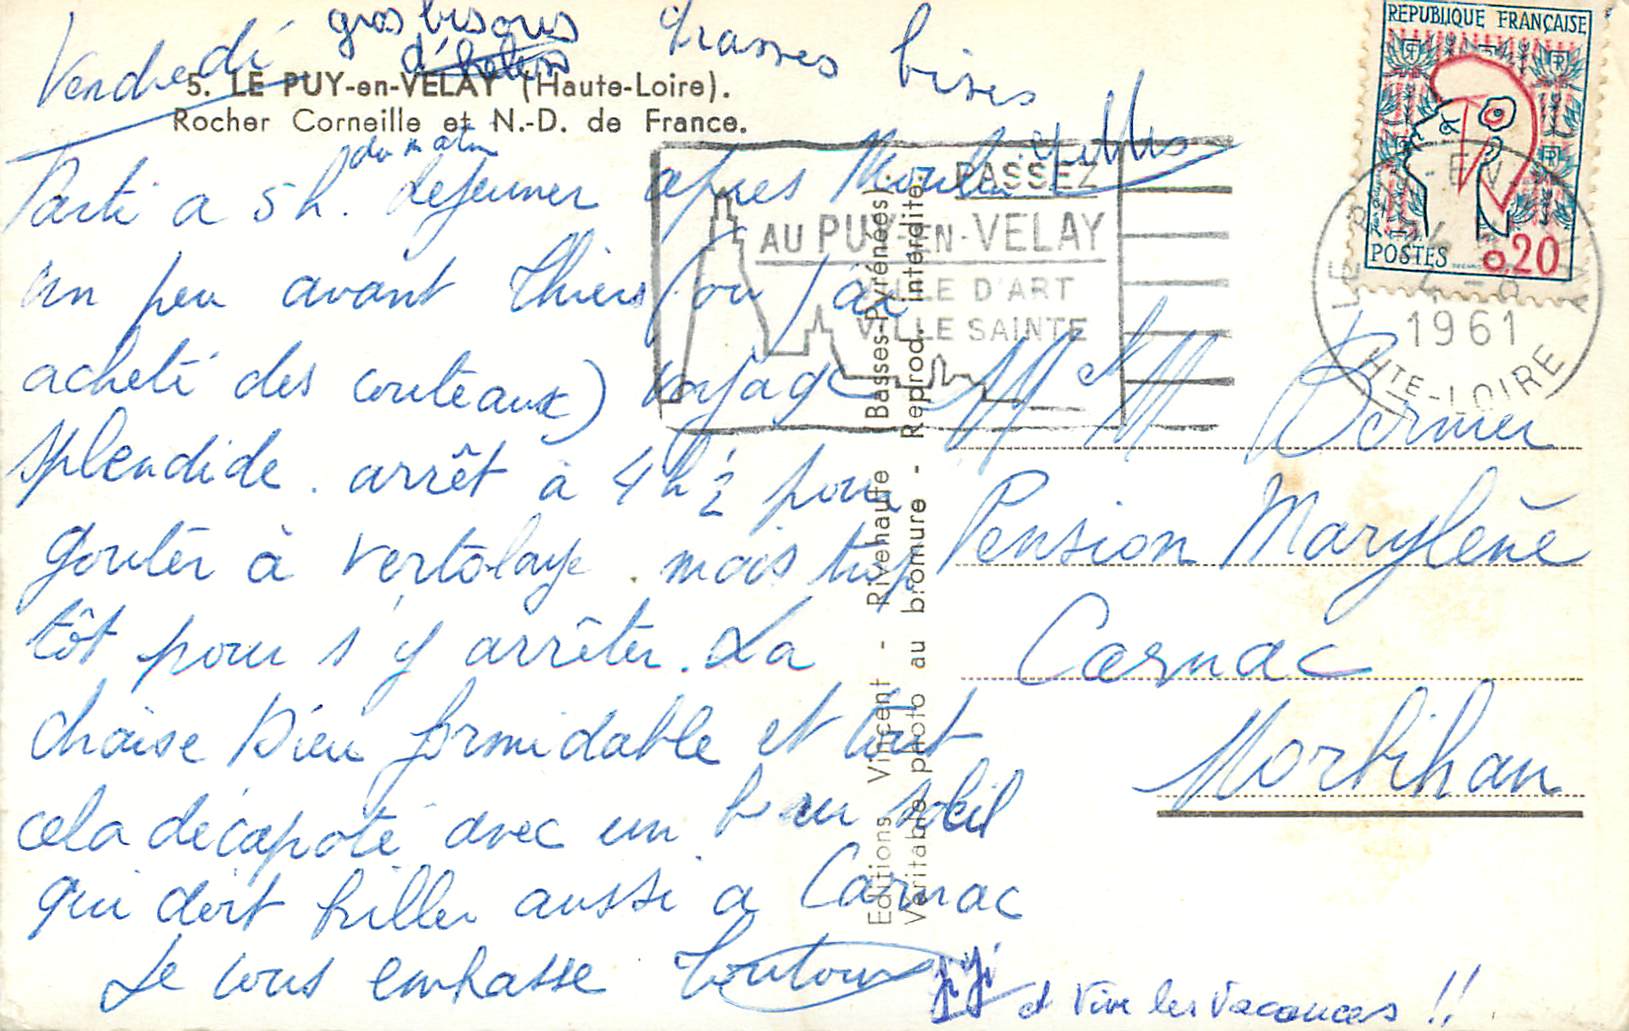 Vendredi
gros bisous
Grasses bises
5. LE PUY-en-VELAY (Haute-Loire).
Rocher Corneille et N.-D. de France.
du matin
Parti a 5 h. dejeuner apres
un peu avant Thiers (ou j'ai
acheté des couteaux) voyage
splendide. arrêt à 4h ½ pour
gouter à Vertolaye. mais trop
tôt pour s'y arrêter. La
chaise Dieu formidable et tout
cela décapoté avec un beau soleil
qui doit briller aussi a Carnac
Je vous embrasse Toutoun
jiji et vive les vacances !!
PASSEZ
AU PUY-EN-VELAY
VILLE D'ART
VILLE SAINTE
REPUBLIQUE FRANÇAISE
POSTES 0.20
LE PUY-EN-VELAY
1961
HTE-LOIRE
Editions Vincent - Rivehaute (Basses-Pyrénées).
Véritable photo au bromure - Reprod. interdite.
M et M Bernier
Pension Marylène
Carnac
Morbihan